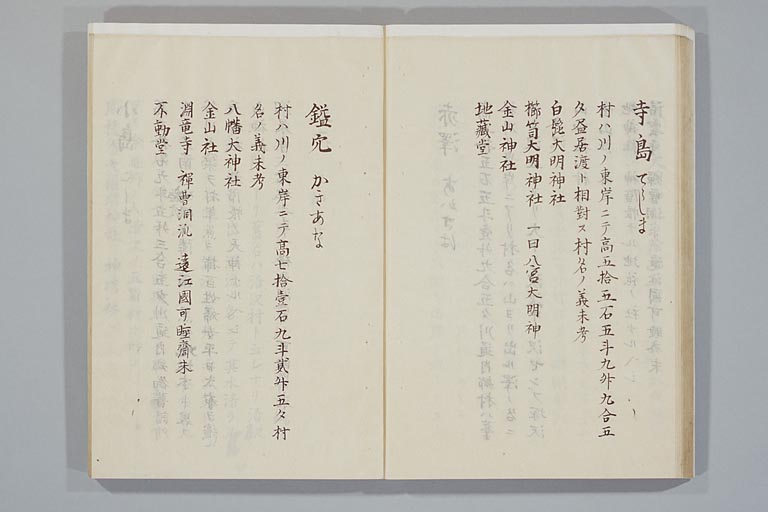 寺島 てらしま
村ハ川ノ東岸ニテ高五拾五石五斗九升九合五
夕盃居渡ト相對ス村名ノ義未考
白髭大明神社
櫛笥大明神社 大日八宮大明神
金山神社
地藏堂
鎰穴 かきあな
村ハ川ノ東岸ニテ高七拾壹石九斗貳升五夕村
名ノ義未考
八幡大神社
金山社
淵竜寺 禪曹洞派 遠江國可睡齋末
不動堂